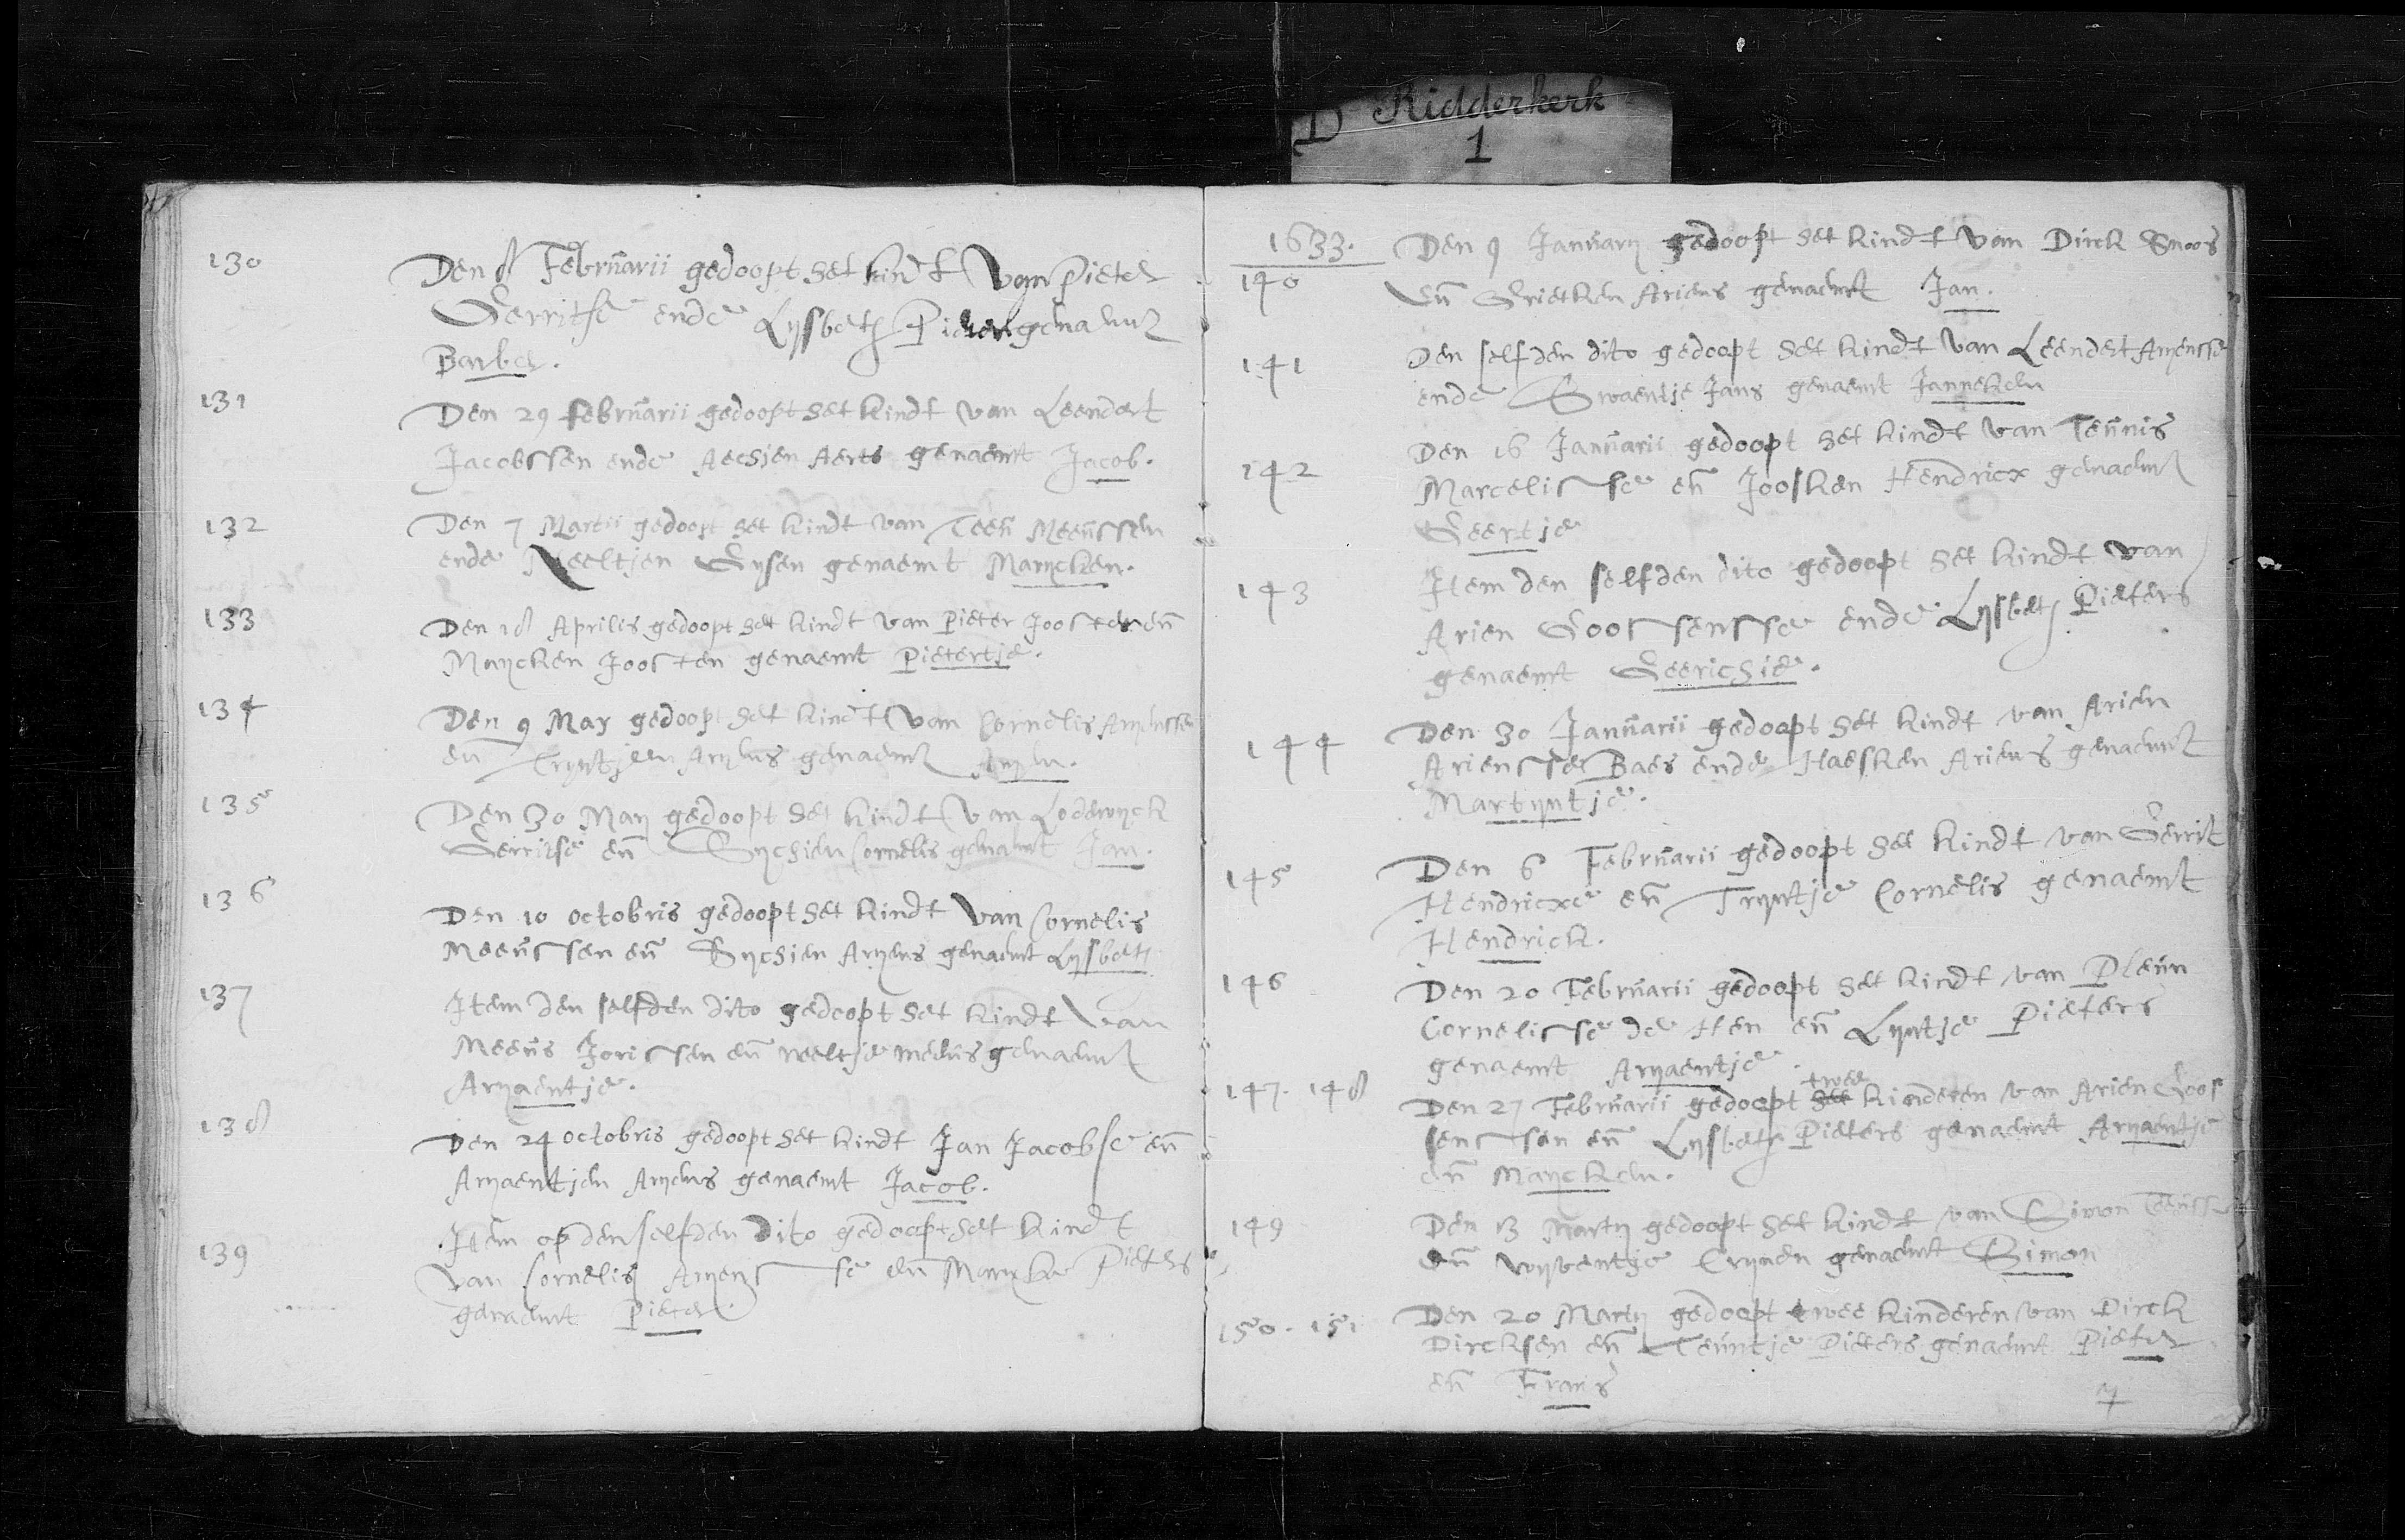 D Ridderkerk
1
130 Den 8 Februarii gedoopt het kindt van Pieter
Gerritse ende Lijsbeth Pieters genaemt
Barber.
131 Den 29 februarii gedoopt het kindt van Leendert
Jacobssen ende Aechjen Aerts genaemt Jacob.
132 Den 7 Martii gedoopt het kindt van Teeu Meeussen
ende Neeltjen Gijsen genaemt Marijcken.
133 Den 18 Aprilis gedoopt het kindt van Pieter Joosten eñ
Maijcken Joosten genaemt Pietertje.
134 Den 9 May gedoopt het kindt van Cornelis Arijenssen
en Trijntjen Arijens genaemt Arijen.
135 Den 30 Maij gedoopt het kindt van Lodewijck
Gerritse eñ Grijchien Cornelis genaemt Jan.
136 Den 10 octobris gedoopt het kindt van Cornelis
Meeussen eñ Sijchien Arijens genaemt Lijsbeth
137 Item den selfden dito gedoopt het kindt van
Meeus Jorissen eñ neeltje meeus genaemt
Arijaentje.
138 Den 24 octobris gedoopt het kindt Jan Jacobse eñ
Arijaentjen Arijens genaemt Jacob.
139 Item op den selfden dito gedoopt het kindt
van Cornelis Arijensse en Pieters
genaemt Pieter
1633. Den 9 Januarij gedoopt het kindt van Dirck Snoos
140 eñ Grietken Ariens genaemt Jan.
141 Den selfden dito gedoopt het kindt van Leendert Arijensse
ende Swaentje Jans genaemt Janneken
142 Den 16 Januarii gedoopt het kindt van Teunis
Marcelisse eñ Joosken Hendricx genaemt
Geertje
143 Item den selfden dito gedoopt het kindt van
Arien Goossensse ende Lijsbeth Pieters
genaemt Geerichie.
144 Den 30 Januarii gedoopt het kindt van Arien
Ariensse Baes ende Haesken Ariens genaemt
Martijntje.
145 Den 6 Februarii gedoopt het kindt van Gerrit
Hendricxe eñ Trijntje Cornelis genaemt
Hendrick.
146 Den 20 Februarii gedoopt het kindt van Pleun
Cornelisse de Hen eñ Lijntje Pieters
genaemt Arijaentje.
147. 148 Den 27 Februarii gedoopt het twee kinderen van Arien Goos
senssen eñ Lijsbeth Pieters genaemt Arijaentje
eñ Maijcken.
149 Den 13 Martij gedoopt het kindt van Simon Teeusse
eñ wijventje Crijnen genaemt Simon
150. 151 Den 20 Martij gedoopt twee kinderen van Dirck
Dircksen eñ Teuntje Pieters genaemt Pieter
eñ Frans
7